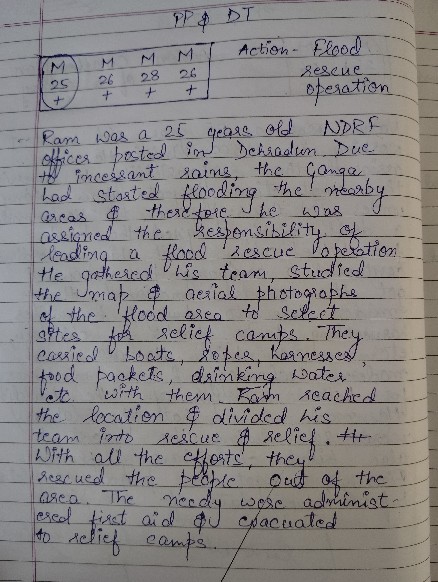 PP & DT
M M M M
25 26 28 26
+ + + +
Action - Flood
rescue
operation
Ram was a 25 years old NDRF
officer posted in Dehradun Due
to incessant rains, the Ganga
had started flooding the nearby
areas & therefore he was
assigned the responsibility of
leading a flood rescue operation
He gathered his team, studied
the map & aerial photographs
of the flood area to select
sites for relief camps. They
carried boats, ropes, harnesses,
food packets, drinking water
etc with them. Ram reached
the location & divided his
team into rescue & relief.
With all the efforts, they
rescued the people out of the
area. The needy were administ-
ered first aid & evacuated
to relief camps.